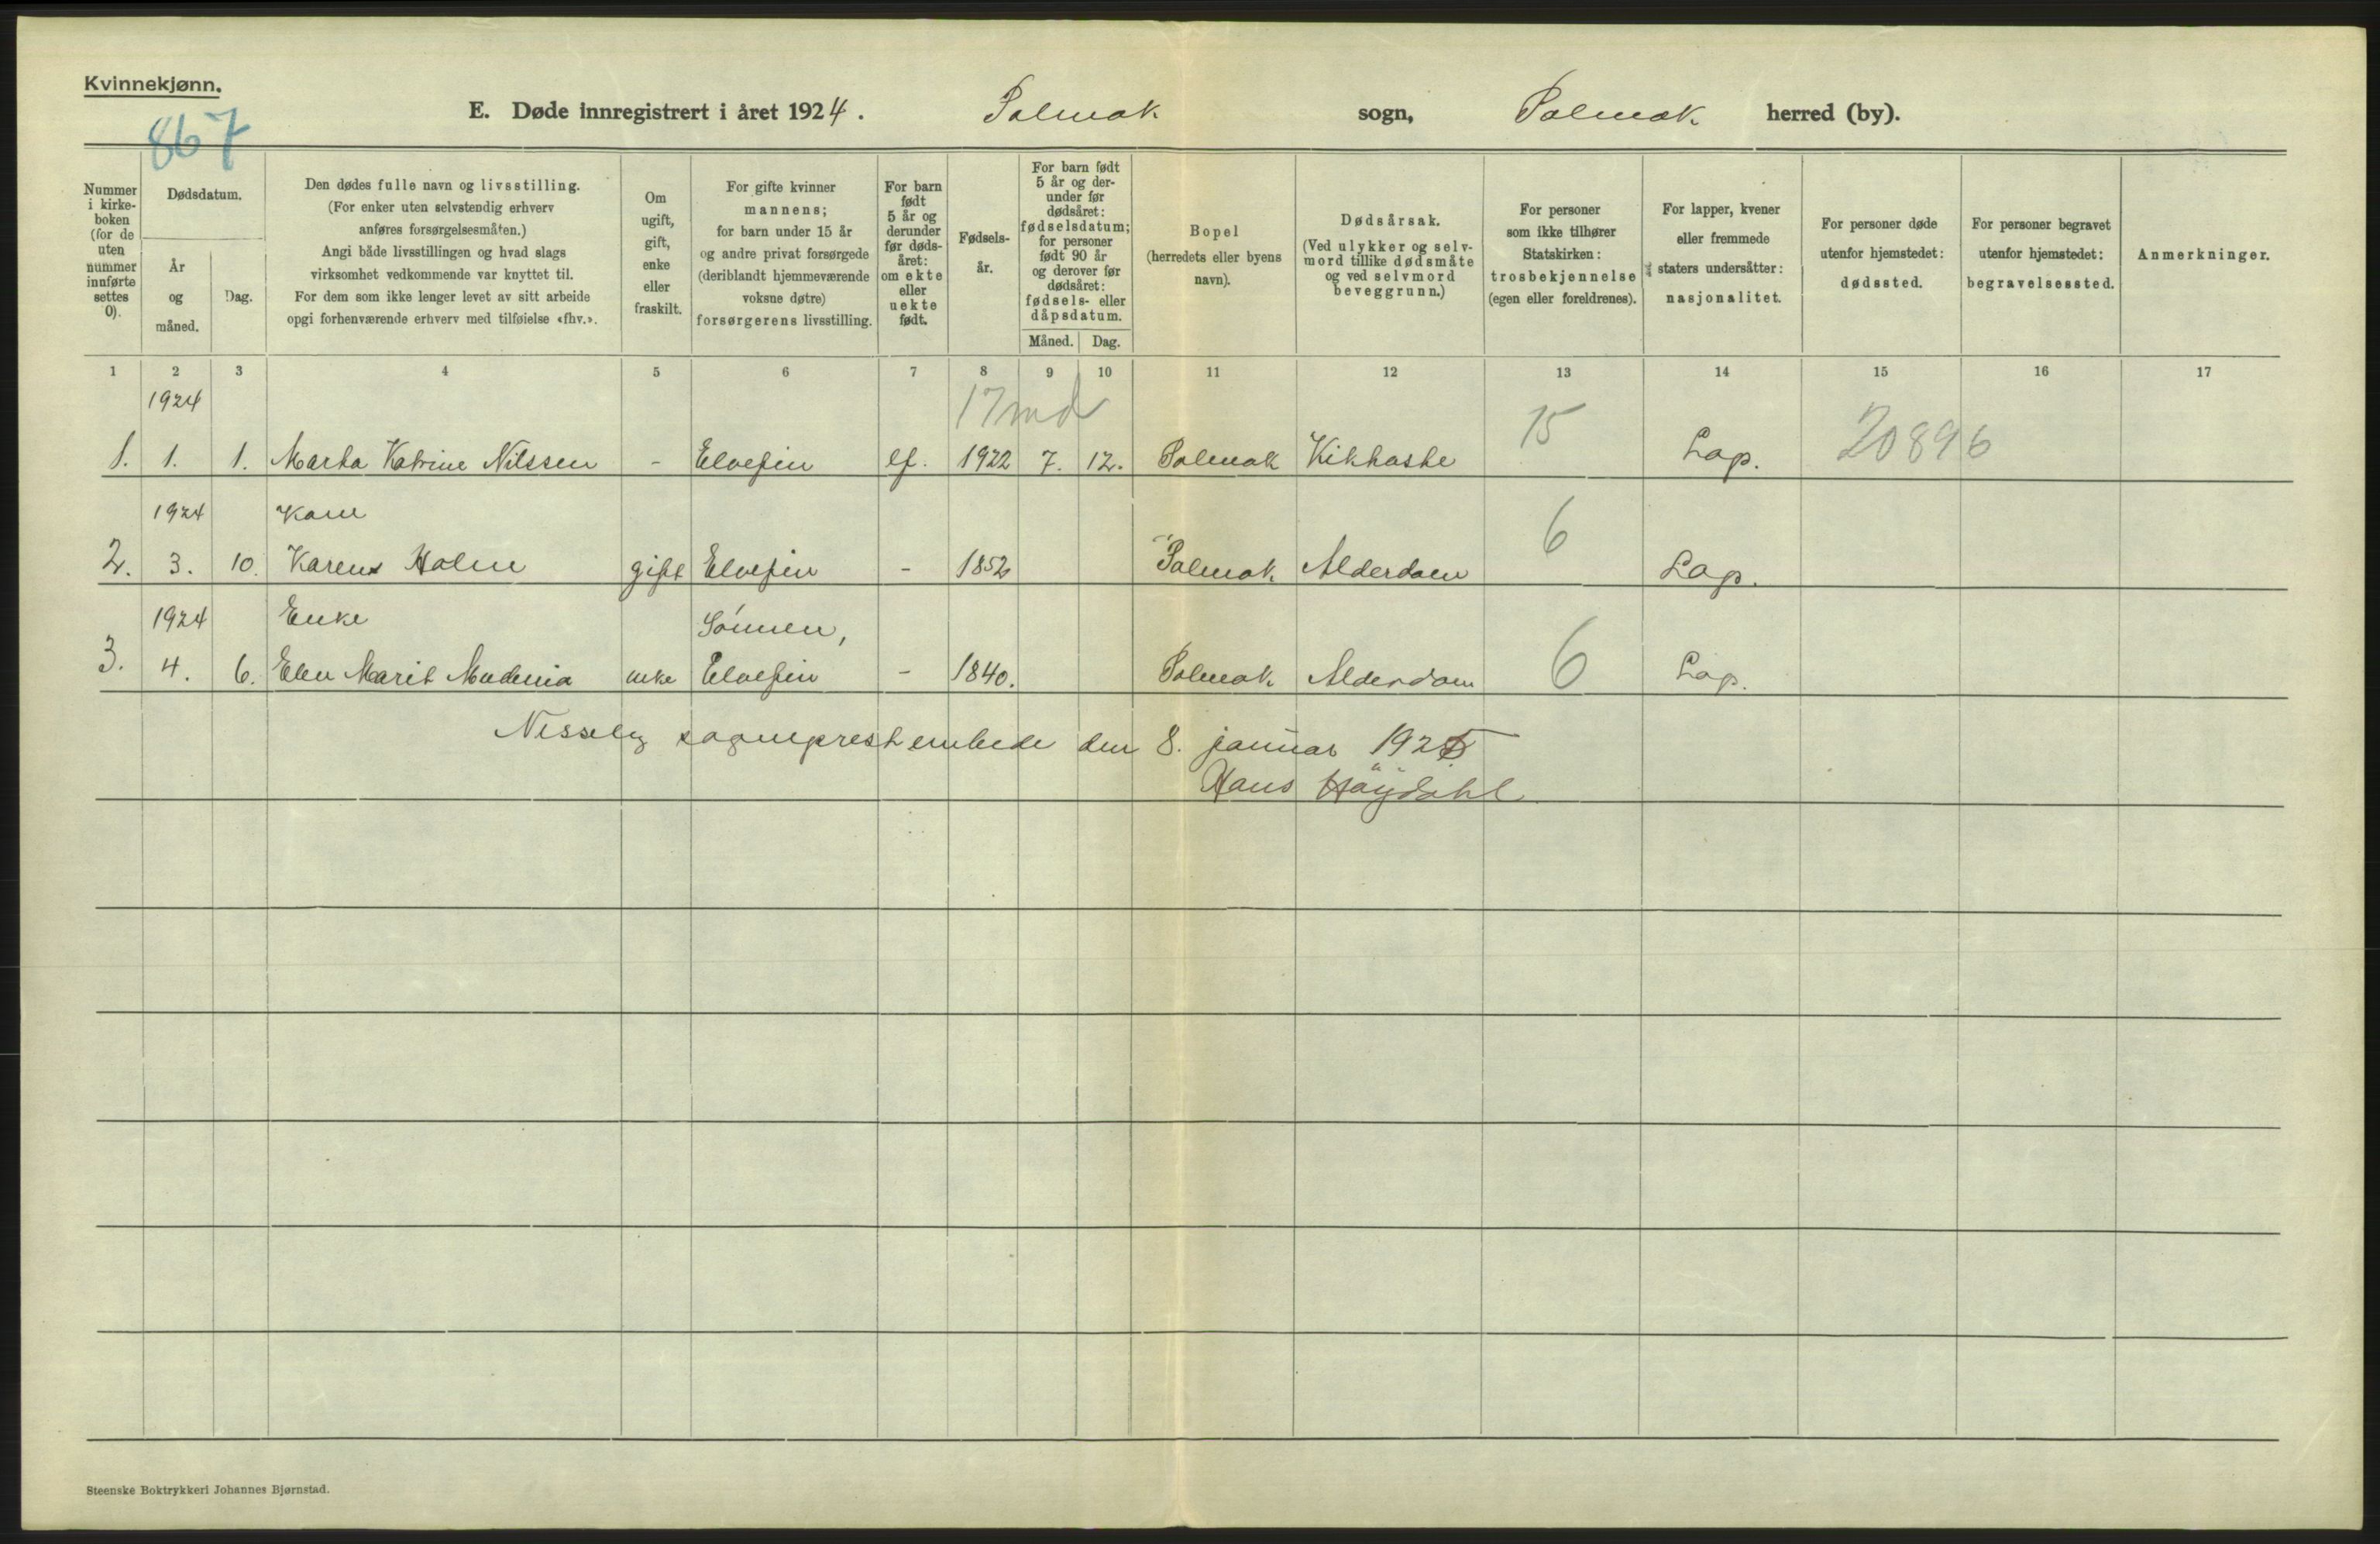 Kvinnekjønn.
867
E. Døde innregistrert i året 1924. Polmak sogn, Polmak herred (by).
Nummer i kirke-boken (for de uten nummer innførte settes 0).
Dødsdatum.
År og måned.
Dag.
Den dødes fulle navn og livsstilling.
(For enker uten selvstendig erhverv
anføres forsørgelsesmåten.)
Angi både livsstillingen og hvad slags
virksomhet vedkommende var knyttet til.
For dem som ikke lenger levet av sitt arbeide
opgi forhenværende erhverv med tilføielse «fhv.».
Om ugift, gift, enke eller fraskilt.
For gifte kvinner
mannens;
for barn under 15 år
og andre privat forsørgede
(deriblandt hjemmeværende
voksne døtre)
forsørgerens livsstilling.
For barn født 5 år og derunder før døds-året: om ekte eller uekte født.
Fødsels-år.
For barn født 5 år og der-under før dødsåret: fødselsdatum; for personer født 90 år og derover før dødsåret: fødsels- eller dåpsdatum.
Måned. Dag.
Bopel
(herredets eller byens
navn).
Dødsårsak.
(Ved ulykker og selv-
mord tillike dødsmåte
og ved selvmord
beveggrunn.)
For personer
som ikke tilhører
Statskirken:
trosbekjennelse
(egen eller foreldrenes).
For lapper, kvener
eller fremmede
staters undersåtter:
nasjonalitet.
For personer døde
utenfor hjemstedet:
dødssted.
For personer begravet
utenfor hjemstedet:
begravelsessted.
Anmerkninger.
1 2 3 4 5 6 7 8 9 10 11 12 13 14 15 16 17
1924 17 md 15 20896
1. 1. 1. Marta Katrine Nilssen - Elvefin ef. 1922 7. 12. Polmak Kikhoste Lap.
1924 Kone 6
2. 3. 10. Karen Holm gift Elvefin - 1852 Polmak Alderdom Lap.
1924 Enke Sönnen, 6
3. 4. 6. Elen Marit Mudenia enke Elvefin - 1840. Polmak Alderdom Lap.
Nesseby sogneprestembede den 8. januar 1925
Hans Höydahl
Steenske Boktrykkeri Johannes Bjørnstad.